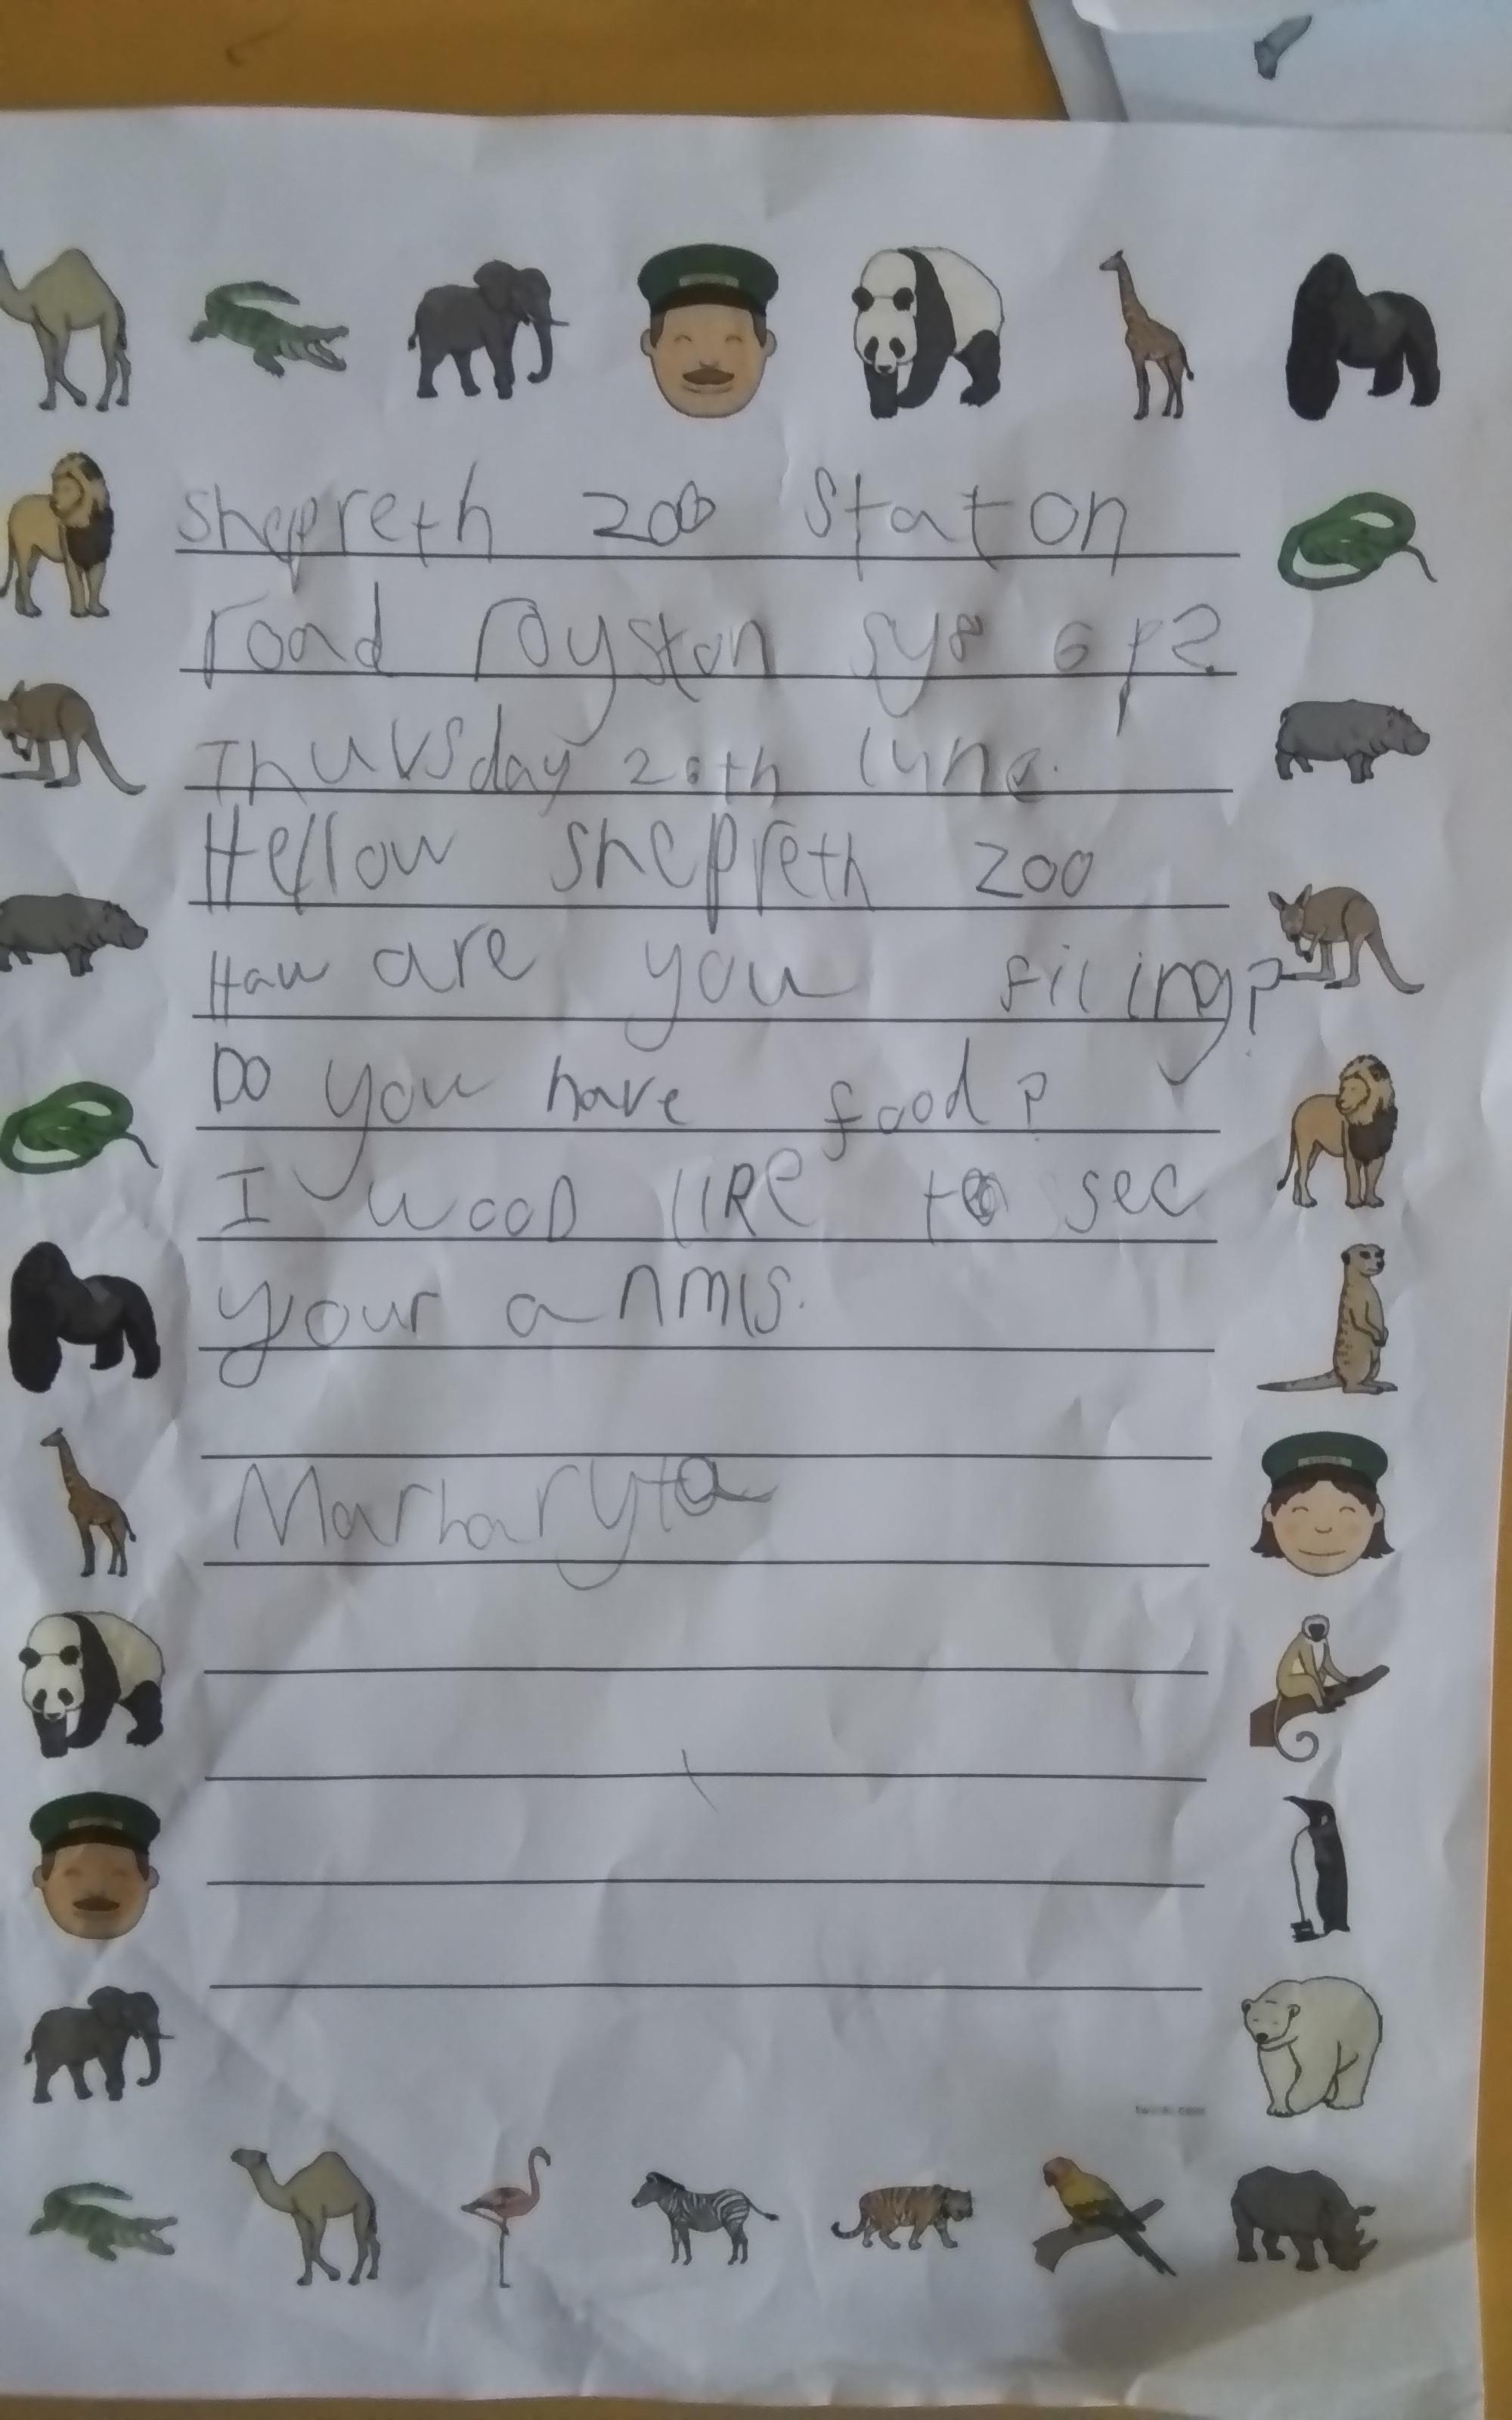 shepreth zoo Staton
road royston sy8 6pz
Thursday 20th lune.
Hellow shepreth zoo
Haw are you filing?
Do you have food?
I wood like to see
your anmls.
Marharyta